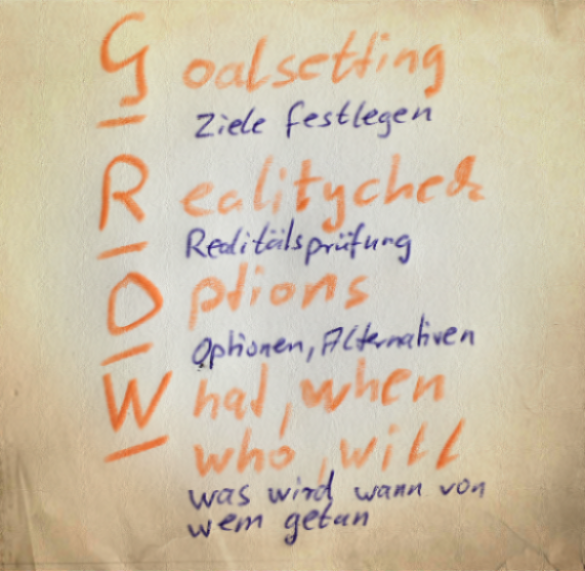 Goalsetting
Ziele festlegen
Realitycheck
Realitätsprüfung
Options
Optionen, Alternativen
What, when
who, will
was wird wann von
wem getan